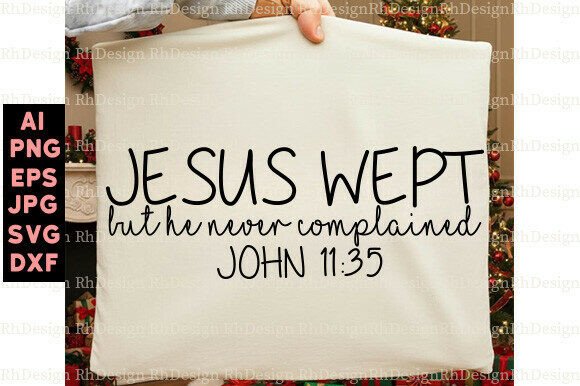 AI
PNG
EPS
JPG
SVG
DXF
JESUS WEPT
but he never complained
JOHN 11:35
RhDesign